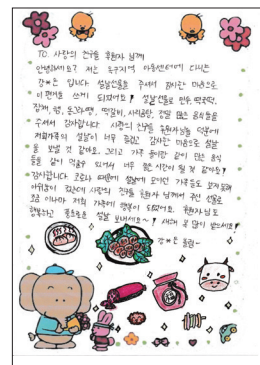 TO. 사랑의 친구들 후원자 님께
안녕하세요? 저는 늑구지역 아동센터에 다니는
강*은 입니다 설날선물을 주셔서 감사한 마음으로
이 편지를 쓰게 되었어요! 설날 선물로 만두, 떡국떡,
잡채, 햄, 동그랑땡, 떡갈비, 사리곰탕, 강정 많은 음식들을
주셔서 감사합니다 사랑의 친구들 후원자님들 덕분에
저희가족의 설날이 너무 즐겁고 감사한 마음으로 설날
을 보낼 것 같아요. 그리고 가족 들이랑 같이 많은 음식
들을 같이 먹을수 있어서 너무 좋은 시간이 될 것 같아요!
감사합니다 코로나 때문에 설날에 모이던 가족들도 못 모여
아쉬움이 컸는데 사랑의 친구들 후원자님께서 주신 선물로
조금 이나마 저희 가족이 행복이 되었어요. 후원자님도
행복하고 풍요로운 설날 보내세요~! 새해 복 많이 받으세요!
강*은 올림~